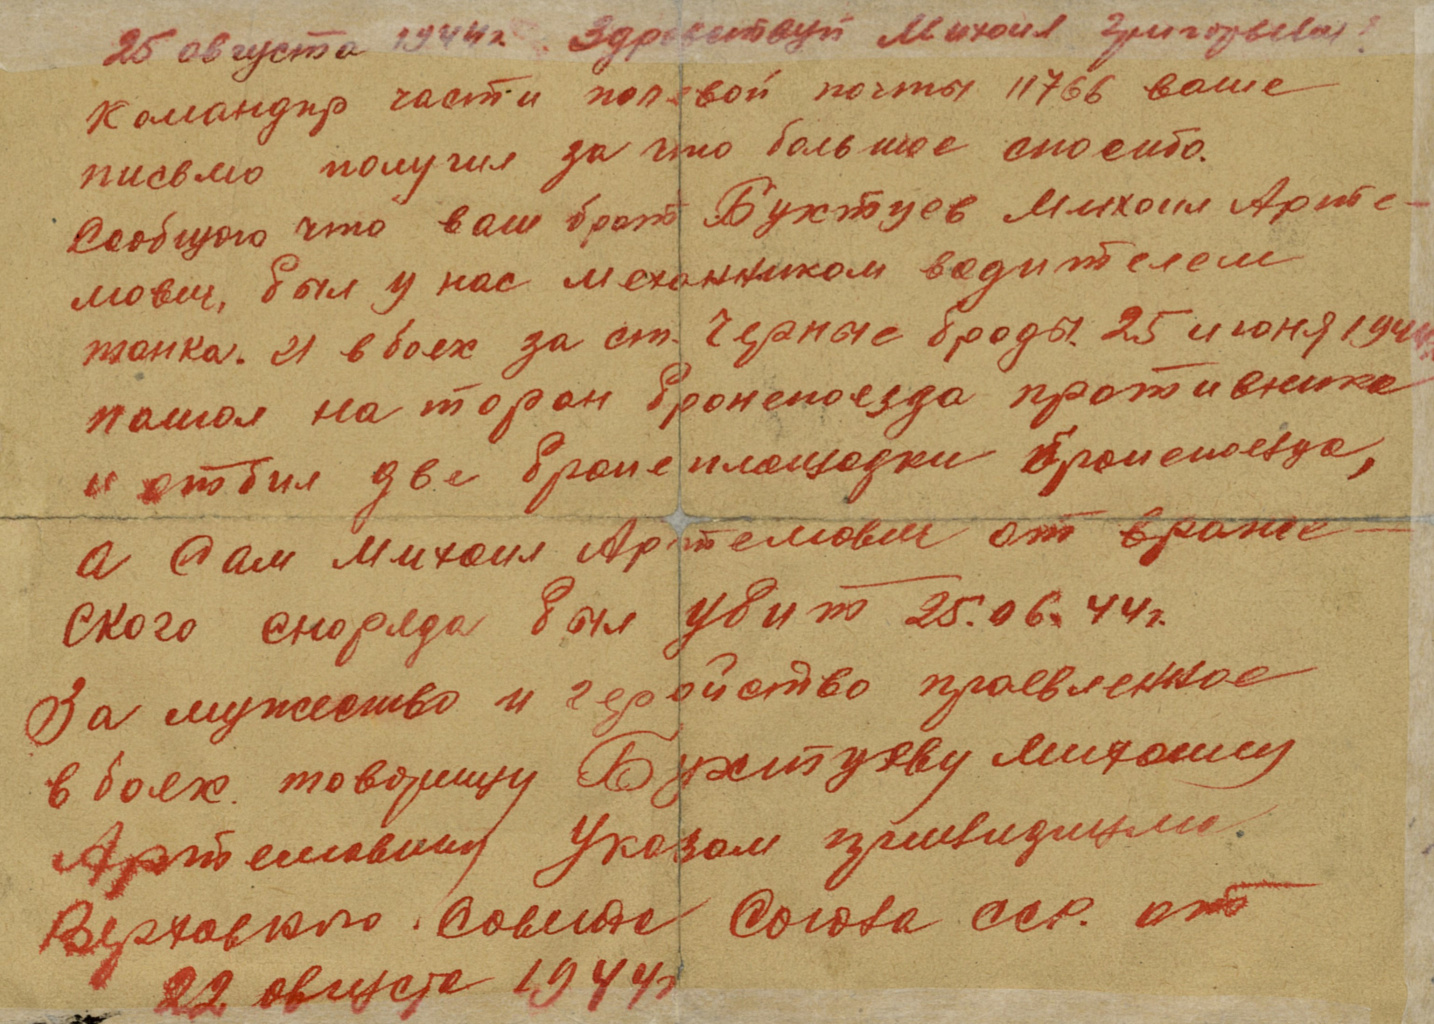 25 августа 1944 г. Здравствуй Михаил Григорьевич!
Командир части полевой почты 11766 ваше
письмо получил за что большое спосибо.
Сообщаю что ваш брат Бухтуев Михаил Арте-
мович, был у нас механником водителем
танка. И в боях за ст. Черные броды. 25 июня 1944г
пошол на торан бронепоезда противника
и отбил две бронеплощадки бронепоезда,
а Сам Михаил Артемович от враже-
ского сноряда был убит 25.06.44г.
За мужество и геройство проевленное
в боях товарищу Бухтуеву Михаилу
Артемовичу Указом призидиума
Верховного Совета Союза сср. от
22 августа 1944г